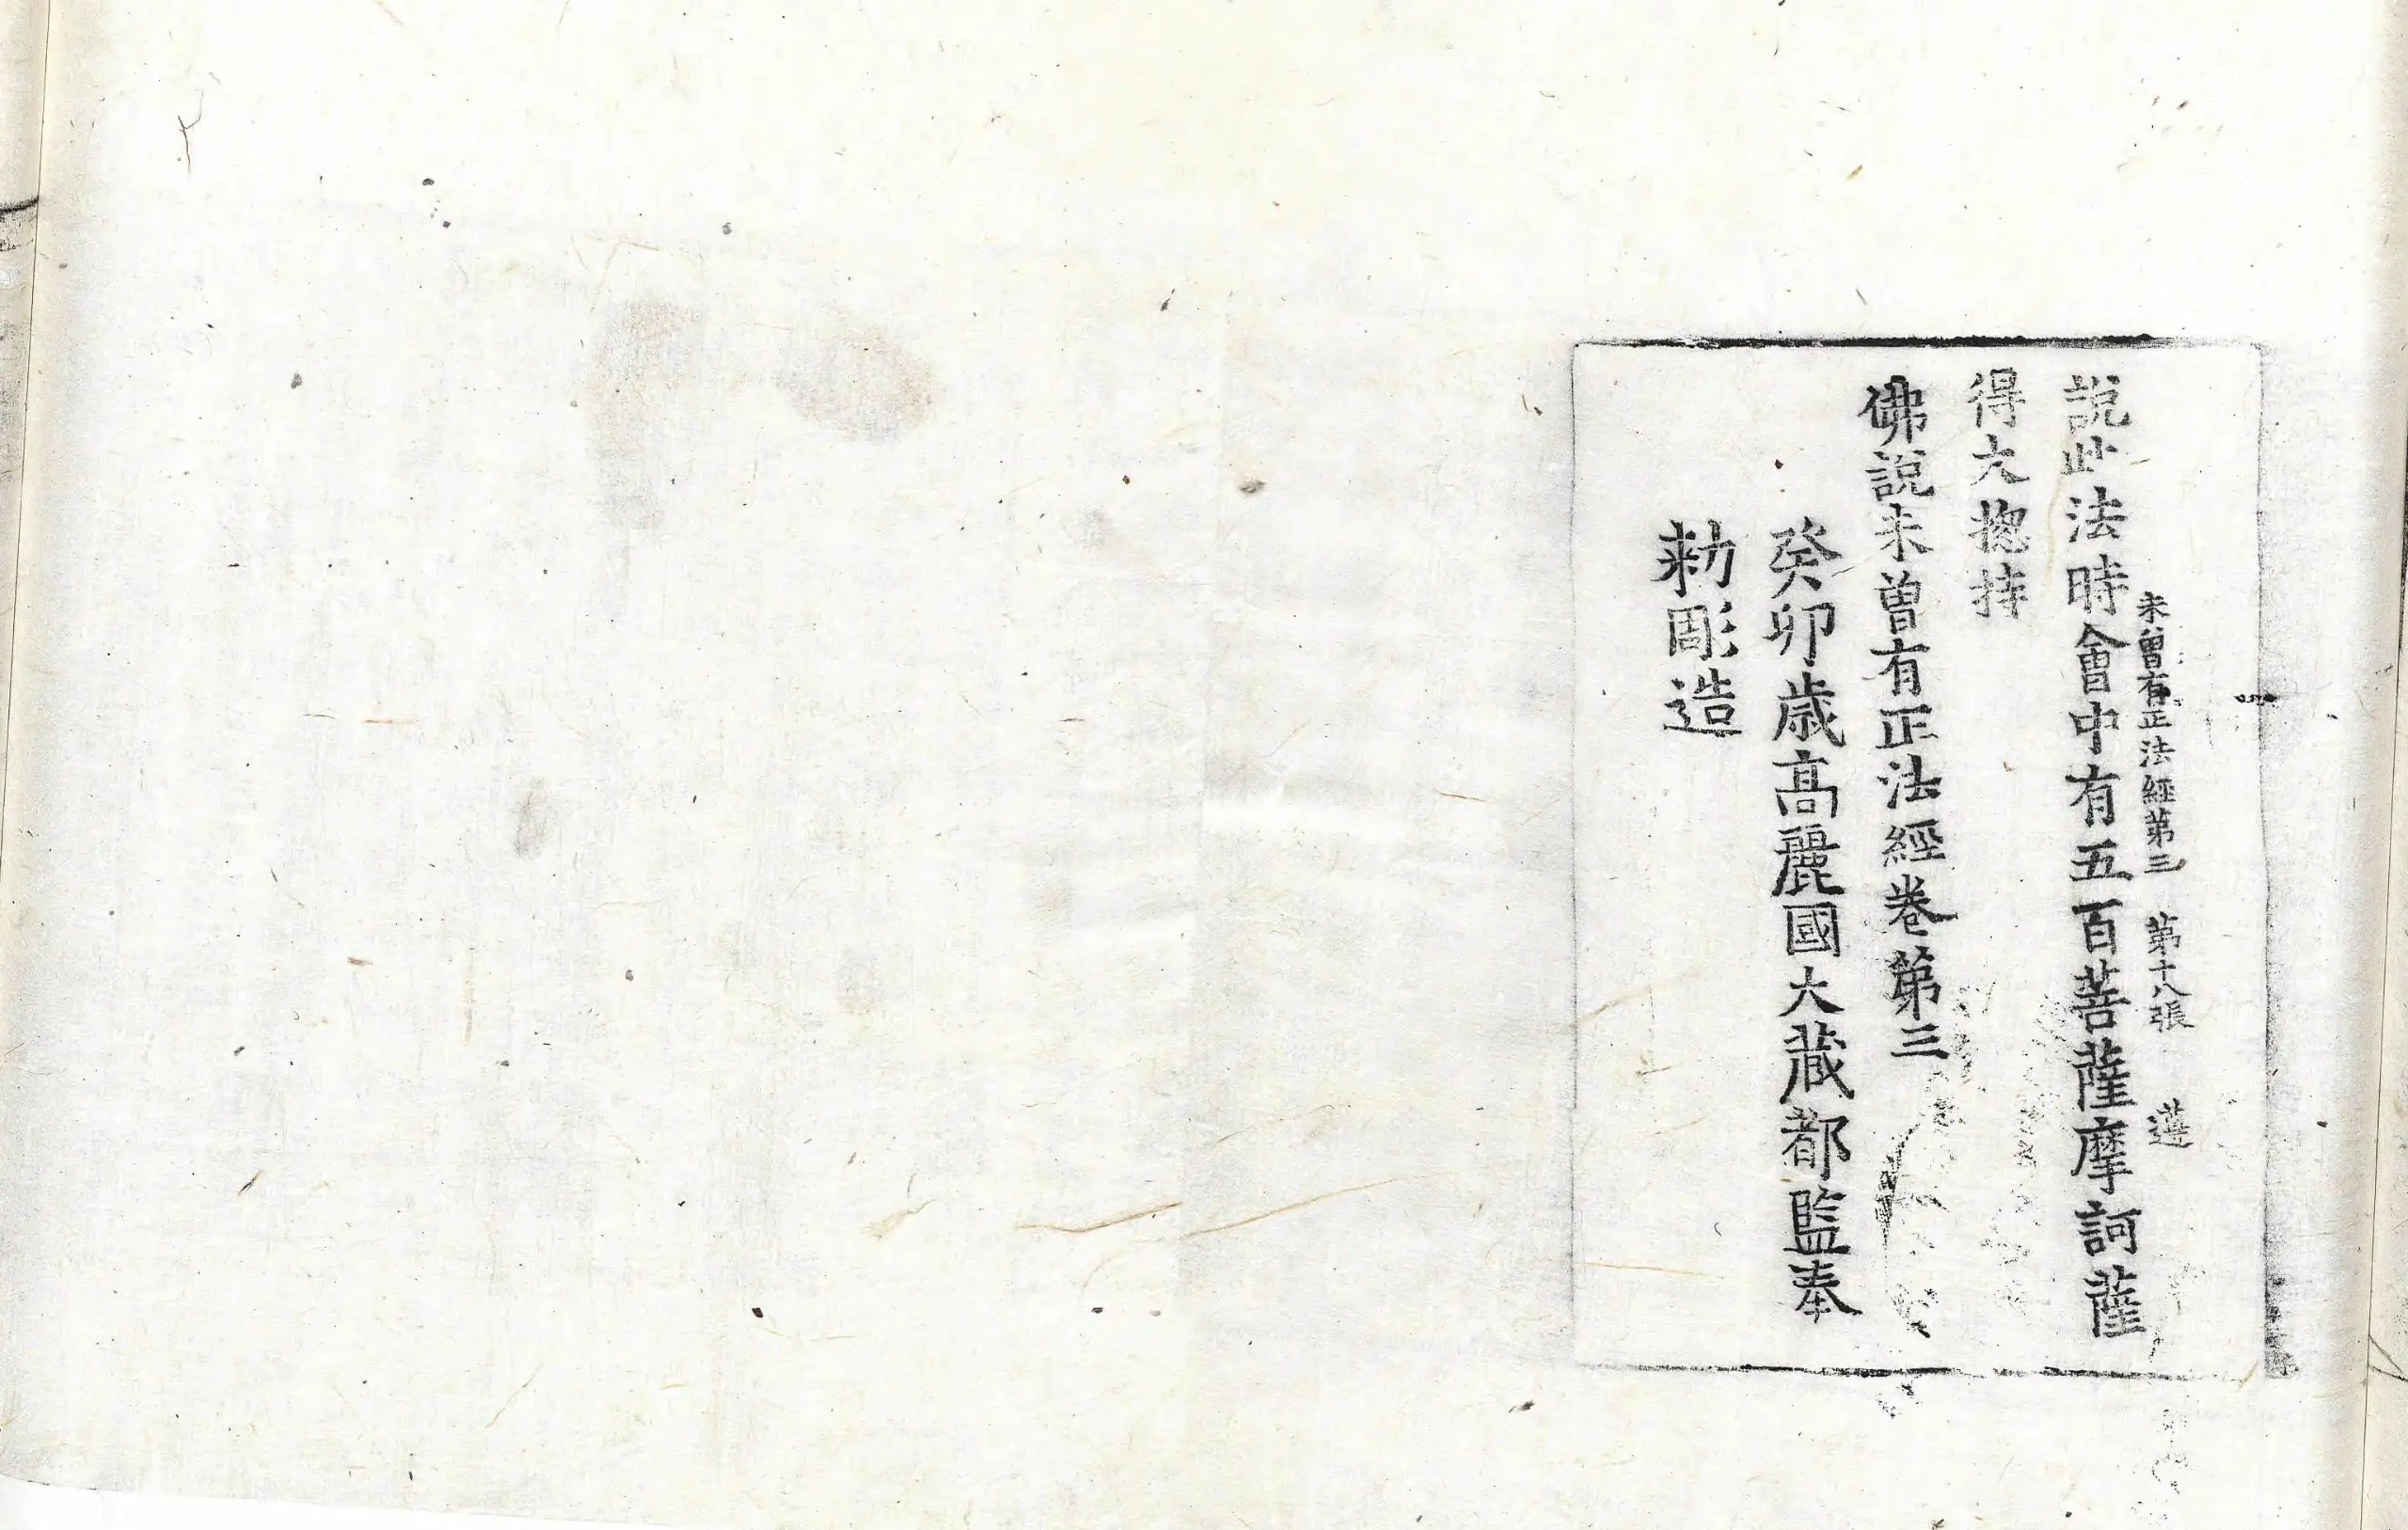 未曾有正法經第三 第十八張 薳
說此法時會中有五百菩薩摩訶薩
得大揔持
佛說未曾有正法經卷第三
癸卯歲高麗國大藏都監奉
勅彫造